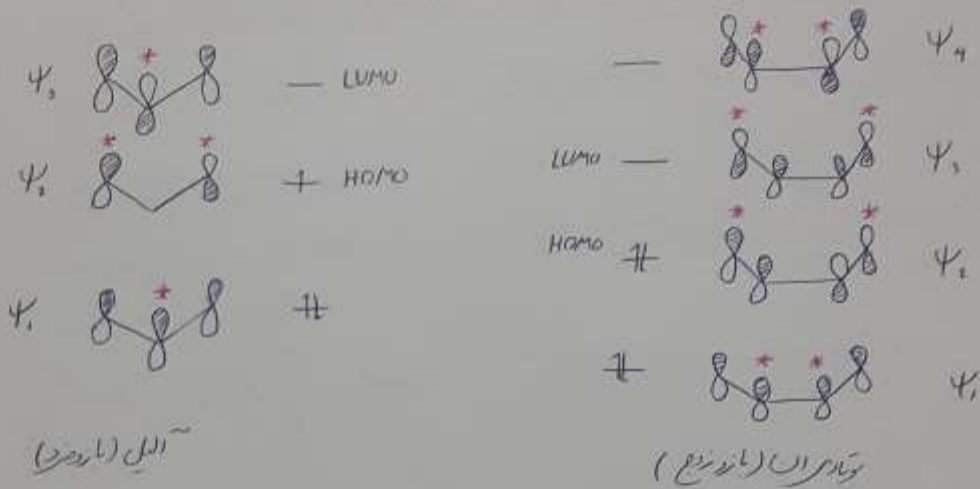 Ψ₃ LUMO
Ψ₂ HOMO
Ψ₁
آلیل (بار فرد)
Ψ₄
LUMO Ψ₃
HOMO Ψ₂
Ψ₁
بوتادی ان (بار زوج)